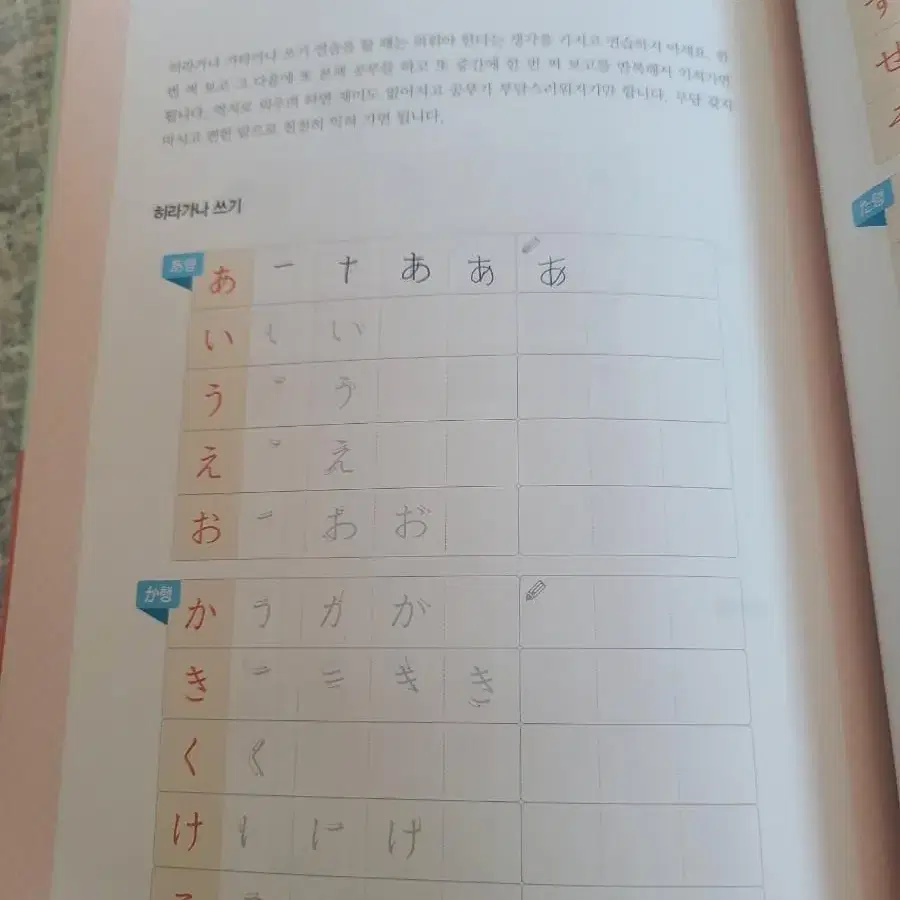 히라가나 가타카나 쓰기 연습을 할 때는 외워야 한다는 생각을 가지고 연습하지 마세요. 한
번 써 보고 그 다음에 또 본책 공부를 하고 또 중간에 한 번 써 보고를 반복해서 익혀가면
됩니다. 억지로 외우려 하면 재미도 없어지고 공부가 부담스러워지기만 합니다. 부담 갖지
마시고 편한 맘으로 천천히 익혀 가면 됩니다.
히라가나 쓰기
あ행
あ ー ナ あ あ あ
い い
う う
え え
お お お
か행
か う カ が
き ー ニ き き
く く
け に け
た행
せ